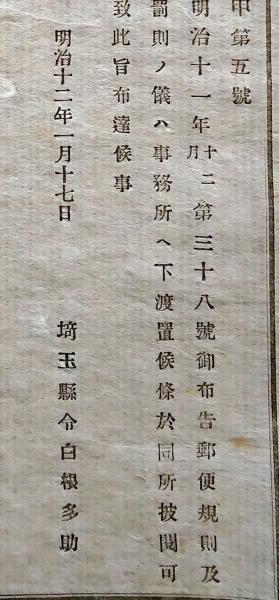 甲第五號
明治十一年十二月第三十八號御布告郵便規則及
罰則ノ儀ハ事務所ヘ下渡置候條於同所披閲可
致此旨布達候事
明治十二年一月十七日
埼玉縣令白根多助